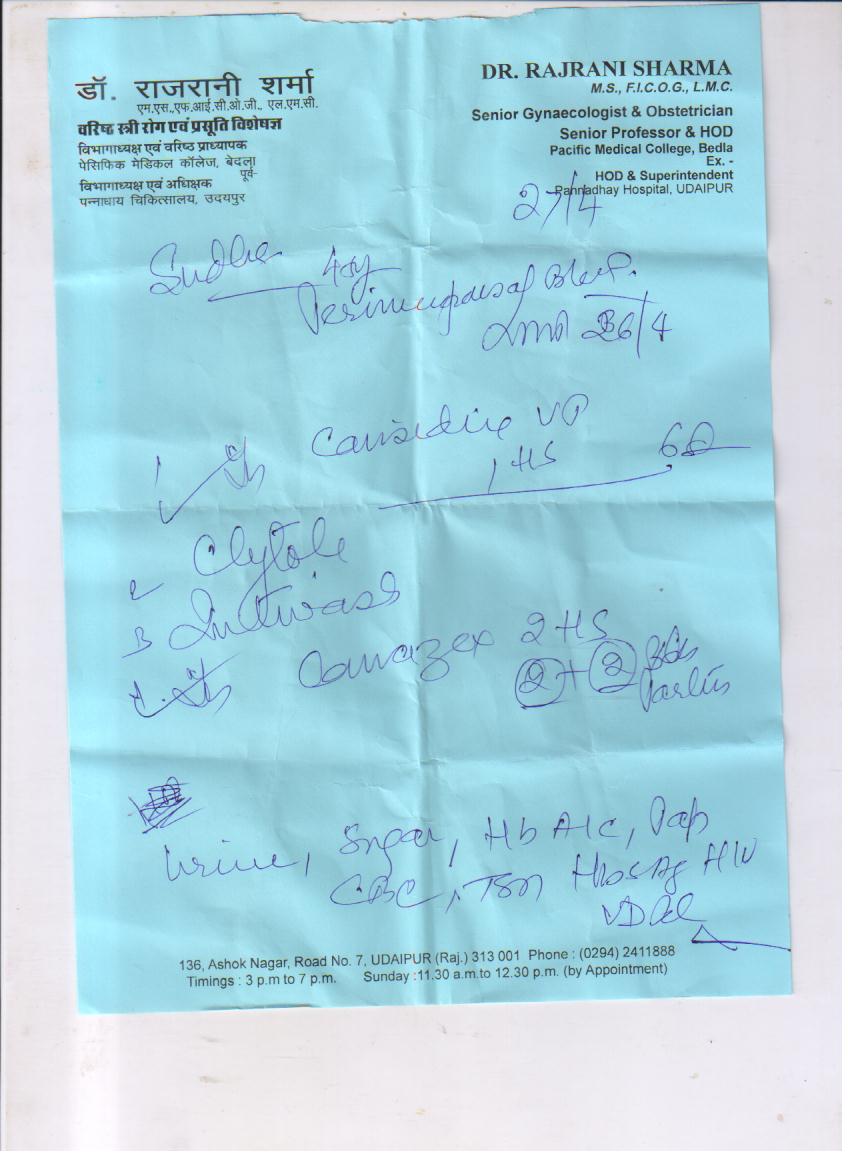 डॉ. राजरानी शर्मा
एम.एस.,एफ.आई.सी.ओ.जी., एल.एम.सी.
वरिष्ठ स्त्री रोग एवं प्रसूति विशेषज्ञ
विभागाध्यक्ष एवं वरिष्ठ प्राध्यापक
पेसिफिक मेडिकल कॉलेज, बेदला
पूर्व-
विभागाध्यक्ष एवं अधिक्षक
पन्नाधाय चिकित्सालय, उदयपुर
DR. RAJRANI SHARMA
M.S., F.I.C.O.G., L.M.C.
Senior Gynaecologist & Obstetrician
Senior Professor & HOD
Pacific Medical College, Bedla
Ex. -
HOD & Superintendent
Pannadhay Hospital, UDAIPUR
27/4
Sudha
LMP 26/4
1 VP
1 HS
2 Clytole
3 Intiwash
4. 2 HS
2 + 2
Urine, Sugar, Hb A1C, Pap
CBC, TSH HbsAg HIV
VDRL
136, Ashok Nagar, Road No. 7, UDAIPUR (Raj.) 313 001 Phone : (0294) 2411888
Timings : 3 p.m to 7 p.m. Sunday :11.30 a.m.to 12.30 p.m. (by Appointment)